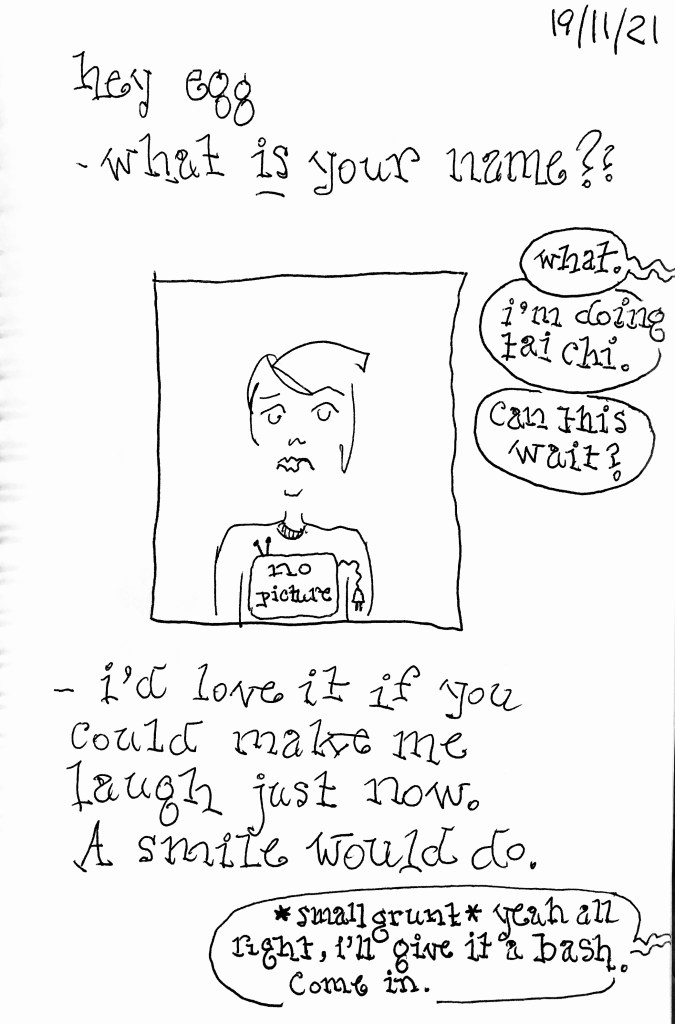 19/11/21
hey egg
- what is your name??
what.
i'm doing
tai chi.
can this
wait?
no
picture
- i'd love it if you
could make me
laugh just now.
A smile would do.
*small grunt* yeah all
right, i'll give it a bash.
come in.